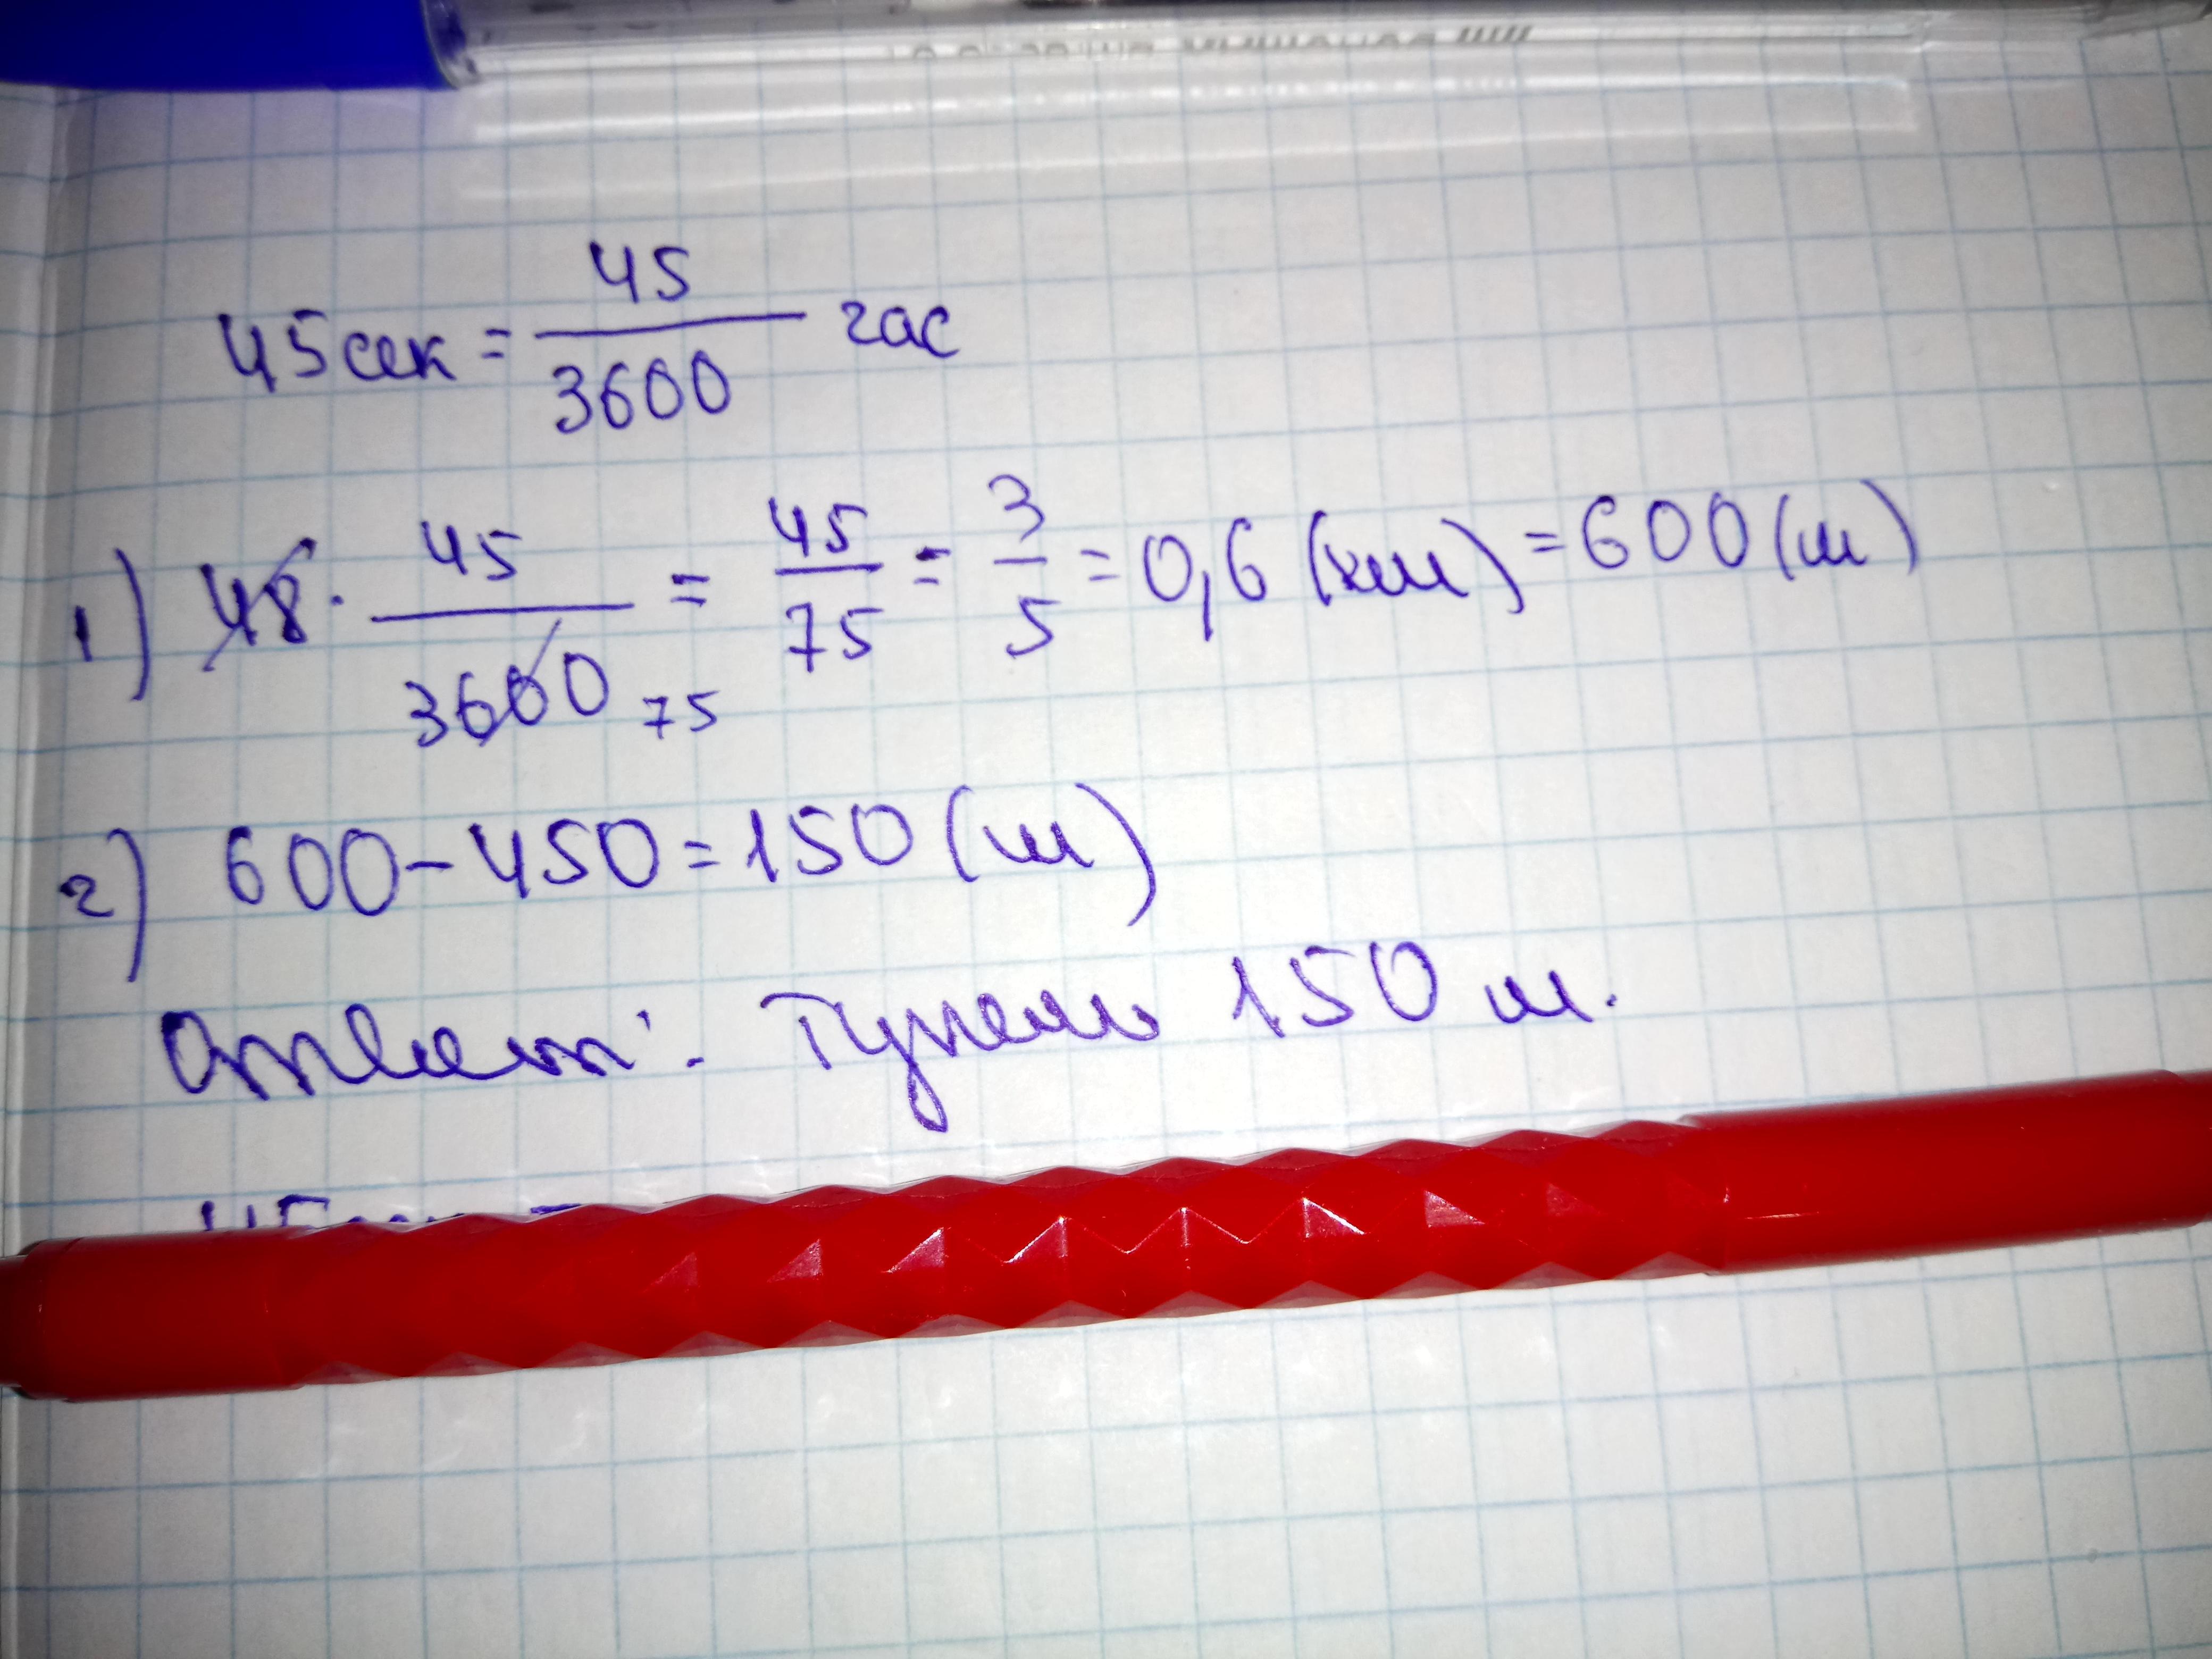 45 сек = 45/3600 час
1) 48 · 45/3600 75 = 45/75 = 3/5 = 0,6 (км) = 600 (м)
2) 600 - 450 = 150 (м)
Ответ: Тунель 150 м.